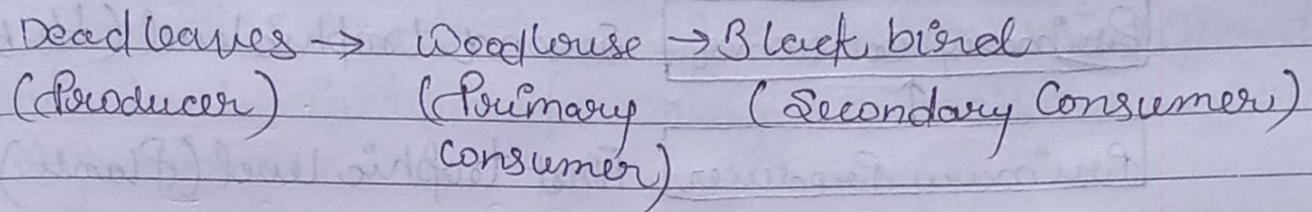 Dead leaves → Woodlouse → Black bird
(Producer) (Primary (Secondary Consumer)
consumer)